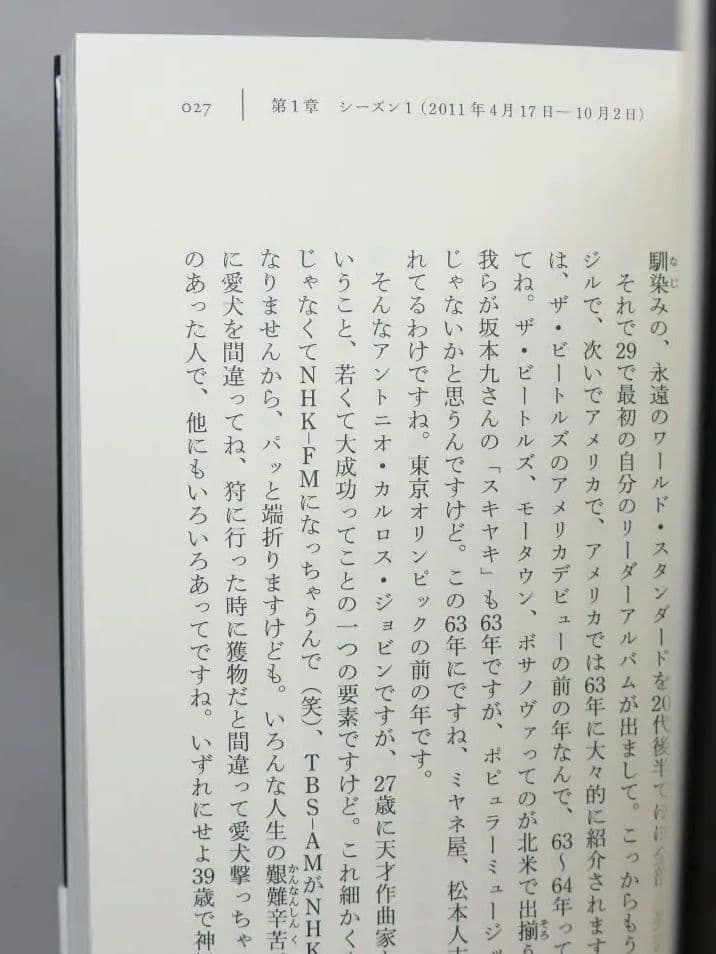 027 第1章 シーズン1（2011年4月17日―10月2日）
馴染みの、永遠のワールド・スタンダードを20代後半で
それで29で最初の自分のリーダーアルバムが出まして。こっからもう
ジルで、次いでアメリカで、アメリカでは63年に大々的に紹介されます
は、ザ・ビートルズのアメリカデビューの前の年なんで、63〜64年って
てね。ザ・ビートルズ、モータウン、ボサノヴァってのが北米で出揃う
我らが坂本九さんの「スキヤキ」も63年ですが、ポピュラーミュージッ
じゃないかと思うんですけど。この63年にですね、ミヤネ屋、松本人
れてるわけですね。東京オリンピックの前の年です。
そんなアントニオ・カルロス・ジョビンですが、27歳に天才作曲家
いうこと、若くて大成功ってことの一つの要素ですけど。これ細かく
じゃなくてNHK–FMになっちゃうんで（笑）、TBS–AMがNHK
なりませんから、パッと端折りますけども。いろんな人生の艱難辛苦
に愛犬を間違ってね、狩に行った時に獲物だと間違って愛犬撃っちゃ
のあった人で、他にもいろいろあってですね。いずれにせよ39歳で神
なじ
そろ
かんなんしんく